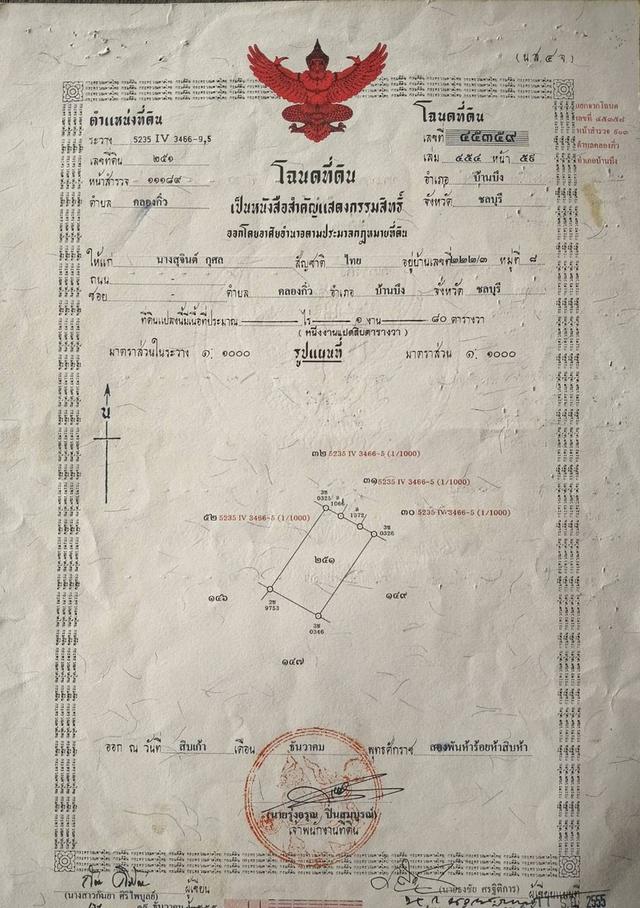 (น.ส.๔ จ)
ตำแหน่งที่ดิน
ระวาง 5235 IV 3466-9,5
เลขที่ดิน ๒๕๑
หน้าสำรวจ ๑๑๑๘๙
ตำบล คลองกิ่ว
โฉนดที่ดิน
เลขที่ ๔๕๓๕๙
เล่ม ๔๕๔ หน้า ๕๙
อำเภอ บ้านบึง
จังหวัด ชลบุรี
ออกจากโฉนด
เลขที่
หน้าสำรวจ
ตำบลคลองกิ่ว
อำเภอบ้านบึง
โฉนดที่ดิน
เป็นหนังสือสำคัญแสดงกรรมสิทธิ์
ออกโดยอาศัยอำนาจตามประมวลกฎหมายที่ดิน
ให้แก่ นางสุจินต์ กุศล สัญชาติ ไทย อยู่บ้านเลขที่ ๒๒๒/๓ หมู่ที่ ๘
ถนน -
ซอย - ตำบล คลองกิ่ว อำเภอ บ้านบึง จังหวัด ชลบุรี
ที่ดินแปลงนี้มีเนื้อที่ประมาณ ไร่ ๑ งาน ๘๐ ตารางวา
( หนึ่งงานแปดสิบตารางวา )
มาตราส่วนในระวาง ๑: ๑๐๐๐ รูปแผนที่ มาตราส่วน ๑: ๑๐๐๐
น
๓๒ 5235 IV 3466-5 (1/1000)
๓๑ 5235 IV 3466-5 (1/1000)
๕๒ 5235 IV 3466-5 (1/1000)
๓๐ 5235 IV 3466-5 (1/1000)
3ช
0325
1066
1372
3ช
0326
๒๕๑
๑๔๖
2ช
9753
3ช
0346
๑๔๙
๑๔๗
ออก ณ วันที่ สิบเก้า เดือน ธันวาคม พุทธศักราช สองพันห้าร้อยห้าสิบห้า
(นายรุ่งอรุณ ปิ่นสมบูรณ์)
เจ้าพนักงานที่ดิน
(นางสาวกันยา ศิริไพบูลย์) ผู้เขียน
(นายธงชัย ศรฐิติการ) ผู้เขียนแผนที่
2555